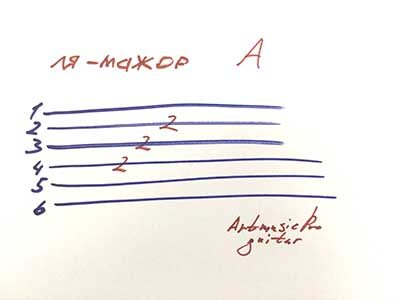 ля-мажор A
1
2 2
3 2
4 2
5
6
Artmusic Pro
guitar